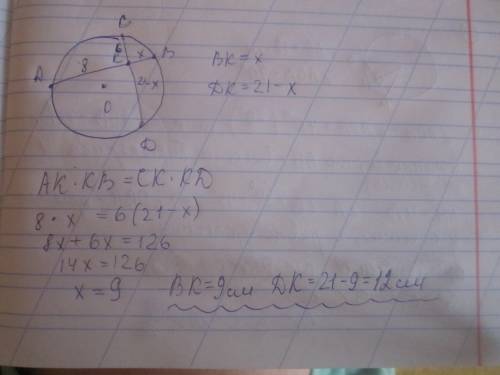 C
6
K
x
B
8
21-x
A
O
D
BK = x
DK = 21 - x
AK · KB = CK · KD
8 · x = 6(21-x)
8x + 6x = 126
14x = 126
x = 9
BK = 9см DK = 21-9 = 12см